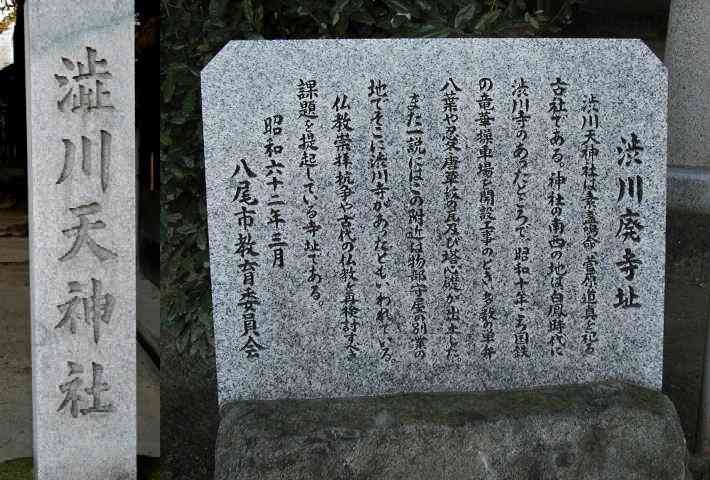 澁川天神社
渋川廃寺址
渋川天神社は素盞嗚命、菅原道真を祀る
古社である。神社の南西の地は白鳳時代に
渋川寺のあったところで、昭和十年ごろ国鉄
の竜華操車場を開設工事のとき多数の単弁
八葉や忍冬唐草紋の瓦及び塔心礎が出土した。
また一説にはこの附近は物部守屋の別業の
地でそこに渋川寺があったともいわれている。
仏教崇拝抗争や古代の仏教を再検討すべき
課題を提起している寺址である。
昭和六十二年三月
八尾市教育委員会